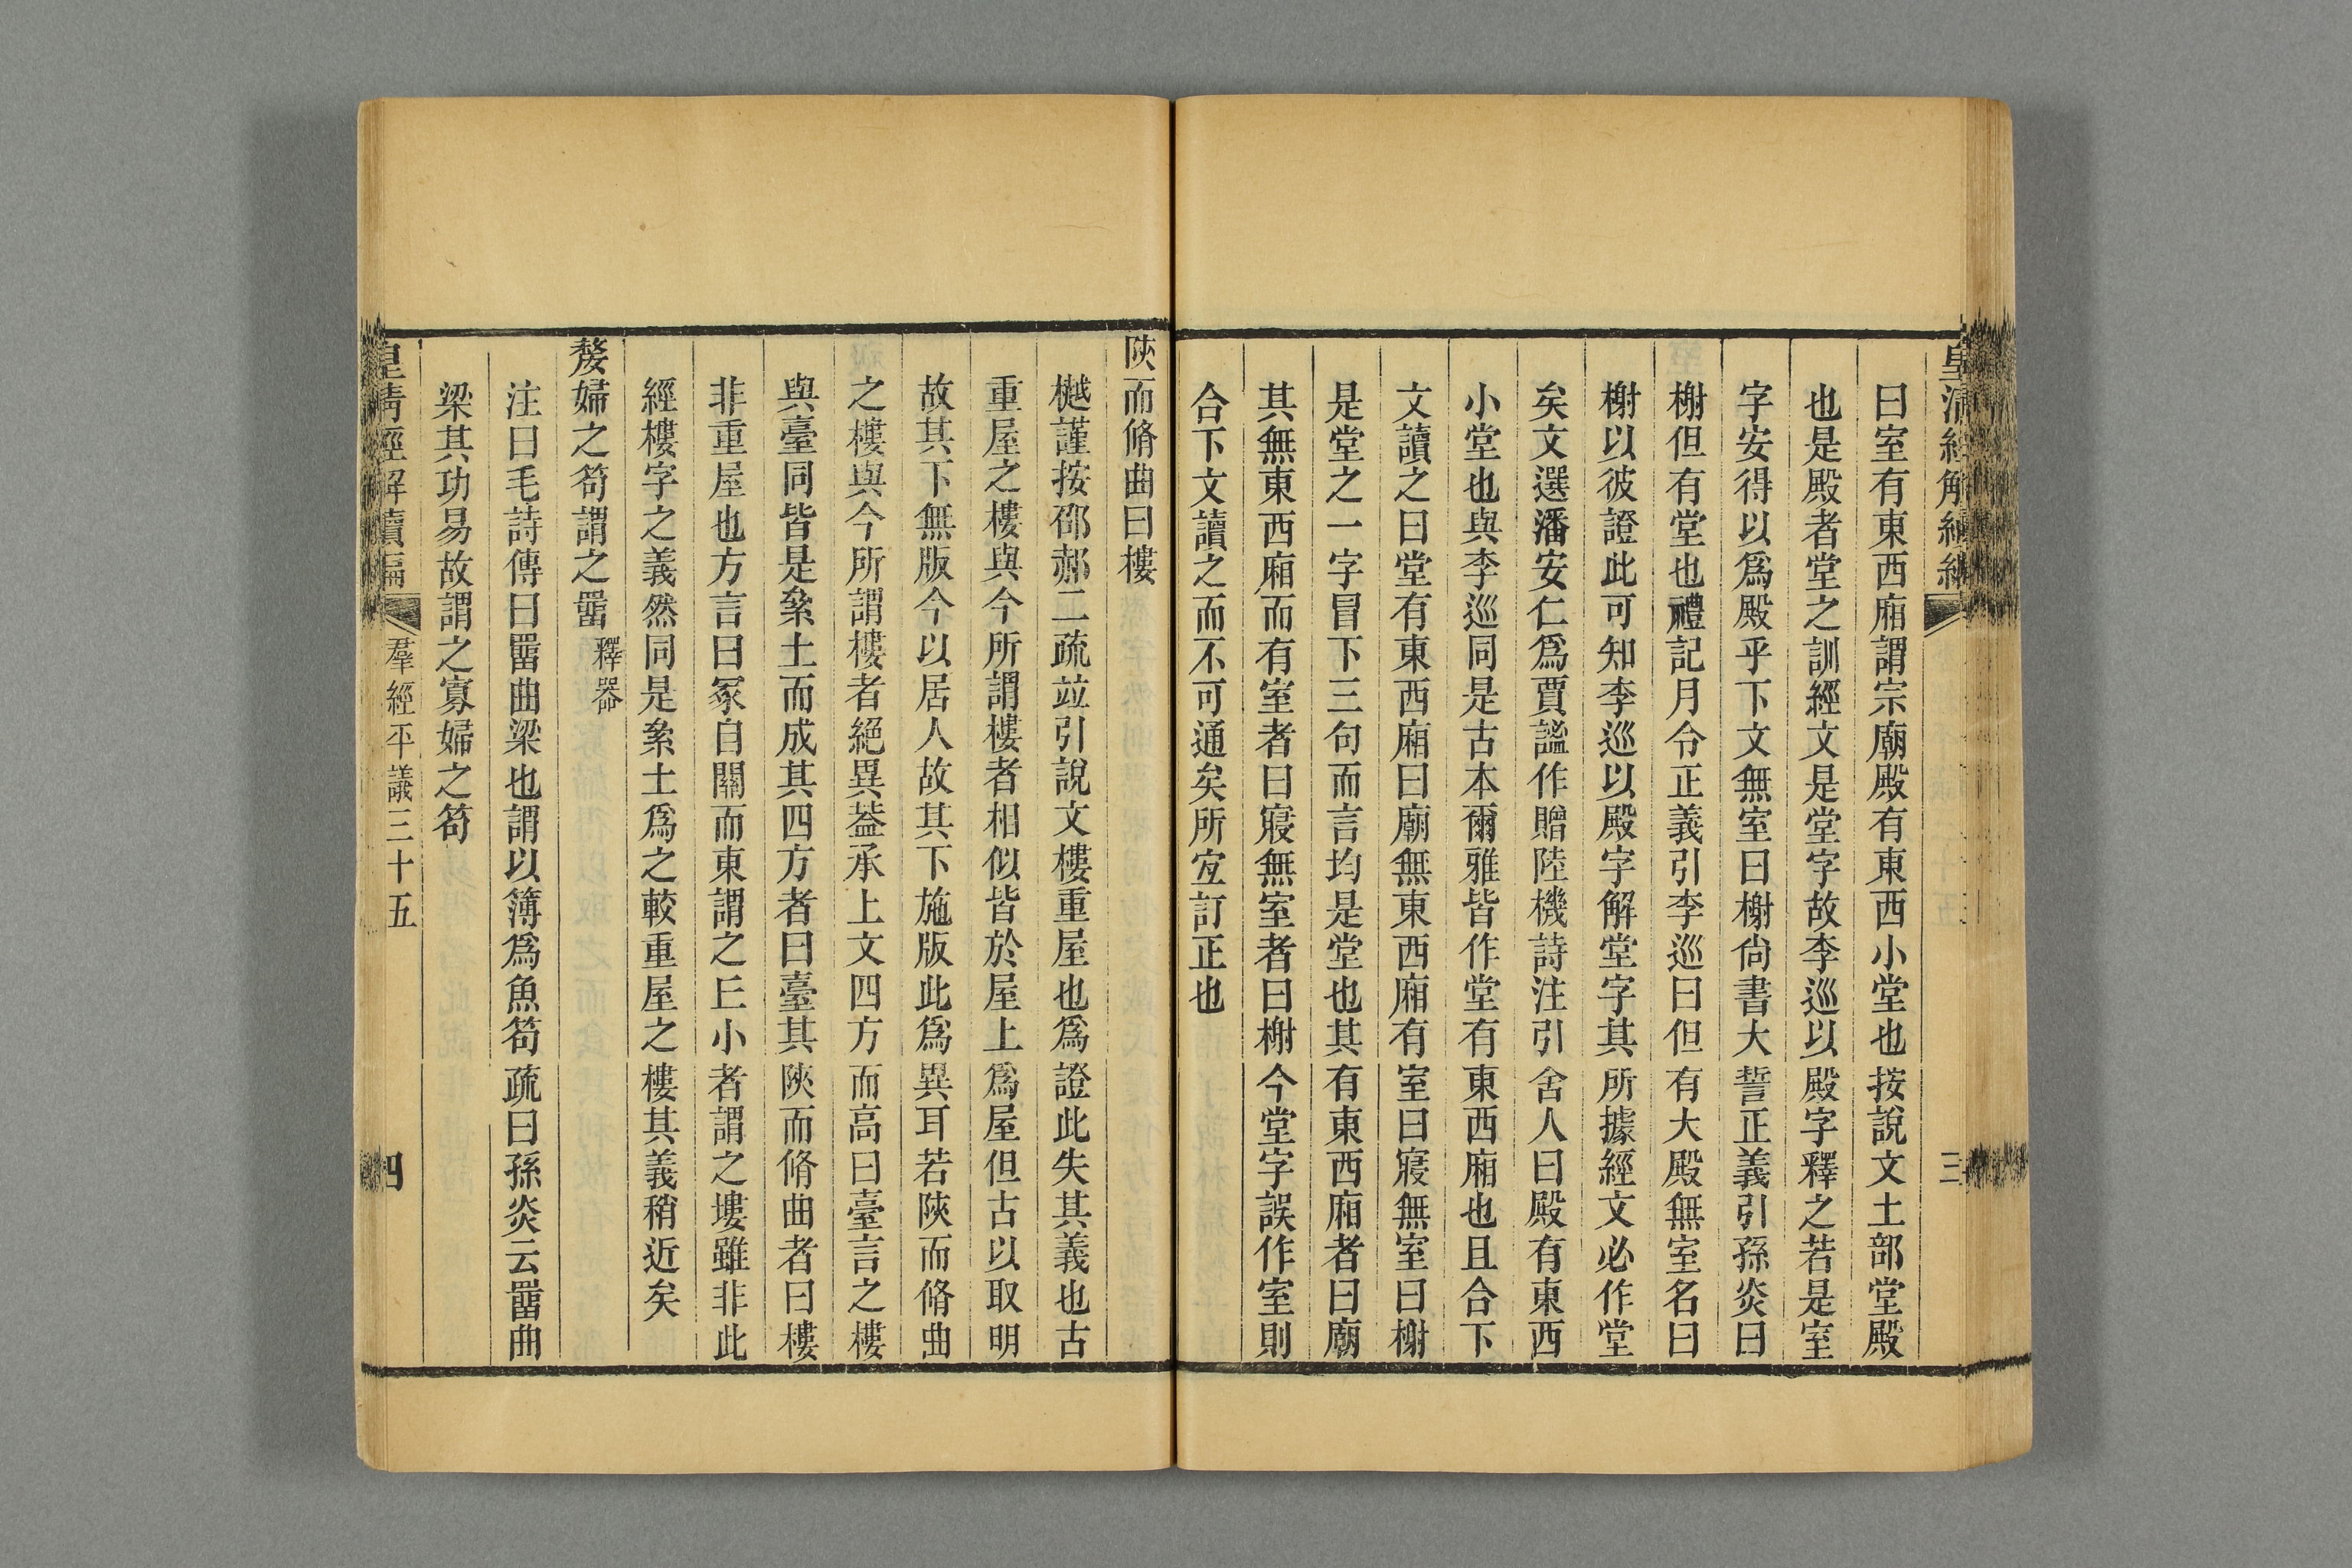 皇清經解續編
三
曰室有東西廂謂宗廟殿有東西小堂也按說文土部堂殿
也是殿者堂之訓經文是堂字故李巡以殿字釋之若是室
字安得以爲殿乎下文無室曰榭尙書大誓正義引孫炎曰
榭但有堂也禮記月令正義引李巡曰但有大殿無室名曰
榭以彼證此可知李巡以殿字解堂字其所據經文必作堂
矣文選潘安仁爲賈謐作贈陸機詩注引舍人曰殿有東西
小堂也與李巡同是古本爾雅皆作堂有東西廂也且合下
文讀之曰堂有東西廂曰廟無東西廂有室曰寢無室曰榭
是堂之一字冒下三句而言均是堂也其有東西廂者曰廟
其無東西廂而有室者曰寢無室者曰榭今堂字誤作室則
合下文讀之而不可通矣所宜訂正也
陜而脩曲曰樓
樾謹按邵郝二疏竝引說文樓重屋也爲證此失其義也古
重屋之樓與今所謂樓者相似皆於屋上爲屋但古以取明
故其下無版今以居人故其下施版此爲異耳若陜而脩曲
之樓與今所謂樓者絕異葢承上文四方而高曰臺言之樓
與臺同皆是絫土而成其四方者曰臺其陜而脩曲者曰樓
非重屋也方言曰冢自關而東謂之丘小者謂之塿雖非此
經樓字之義然同是絫土爲之較重屋之樓其義稍近矣
嫠婦之笱謂之罶 釋器
注曰毛詩傳曰罶曲梁也謂以簿爲魚笱疏曰孫炎云罶曲
梁其功易故謂之寡婦之笱
皇清經解續編
羣經平議三十五
四